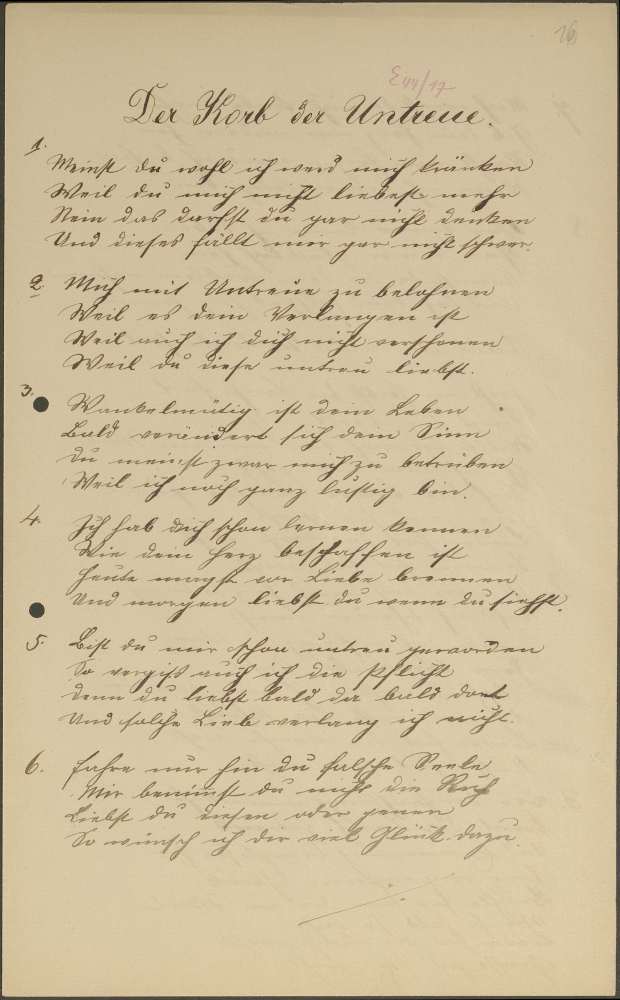 16
E 44/17
Der Korb der Untreue.
1.
Meinst du wohl ich werd mich kränken
Weil du mich nicht liebest mehr
Nein das darfst du gar nicht denken
Und dieses fällt mir gar nicht schwer.
2. Mich mit Untreue zu belohnen
Weil es dein Verlangen ist
Weil auch ich dich nicht verschonen
Weil du diese untreu liebst.
3. Wankelmütig ist dein Leben
Bald verändert sich dein Sinn
Du meinst zwar mich zu betrüben
Weil ich noch ganz lustig bin.
4. Ich hab dich schon lernen kennen
Wie dein Herz beschaffen ist
Heute magst vor Liebe brennen
Und morgen liebst du wenn du siehst.
5. Bist du mir schon untreu geworden
So vergiß auch ich die Pflicht
Denn du liebst bald da bald dort
Und solche Liebe verlang ich nicht.
6. Fahre nur hin du falsche Seele
Mir benimmst du nicht die Ruh
Liebst du diesen oder jenen
So wünsch ich dir viel Glück dazu.